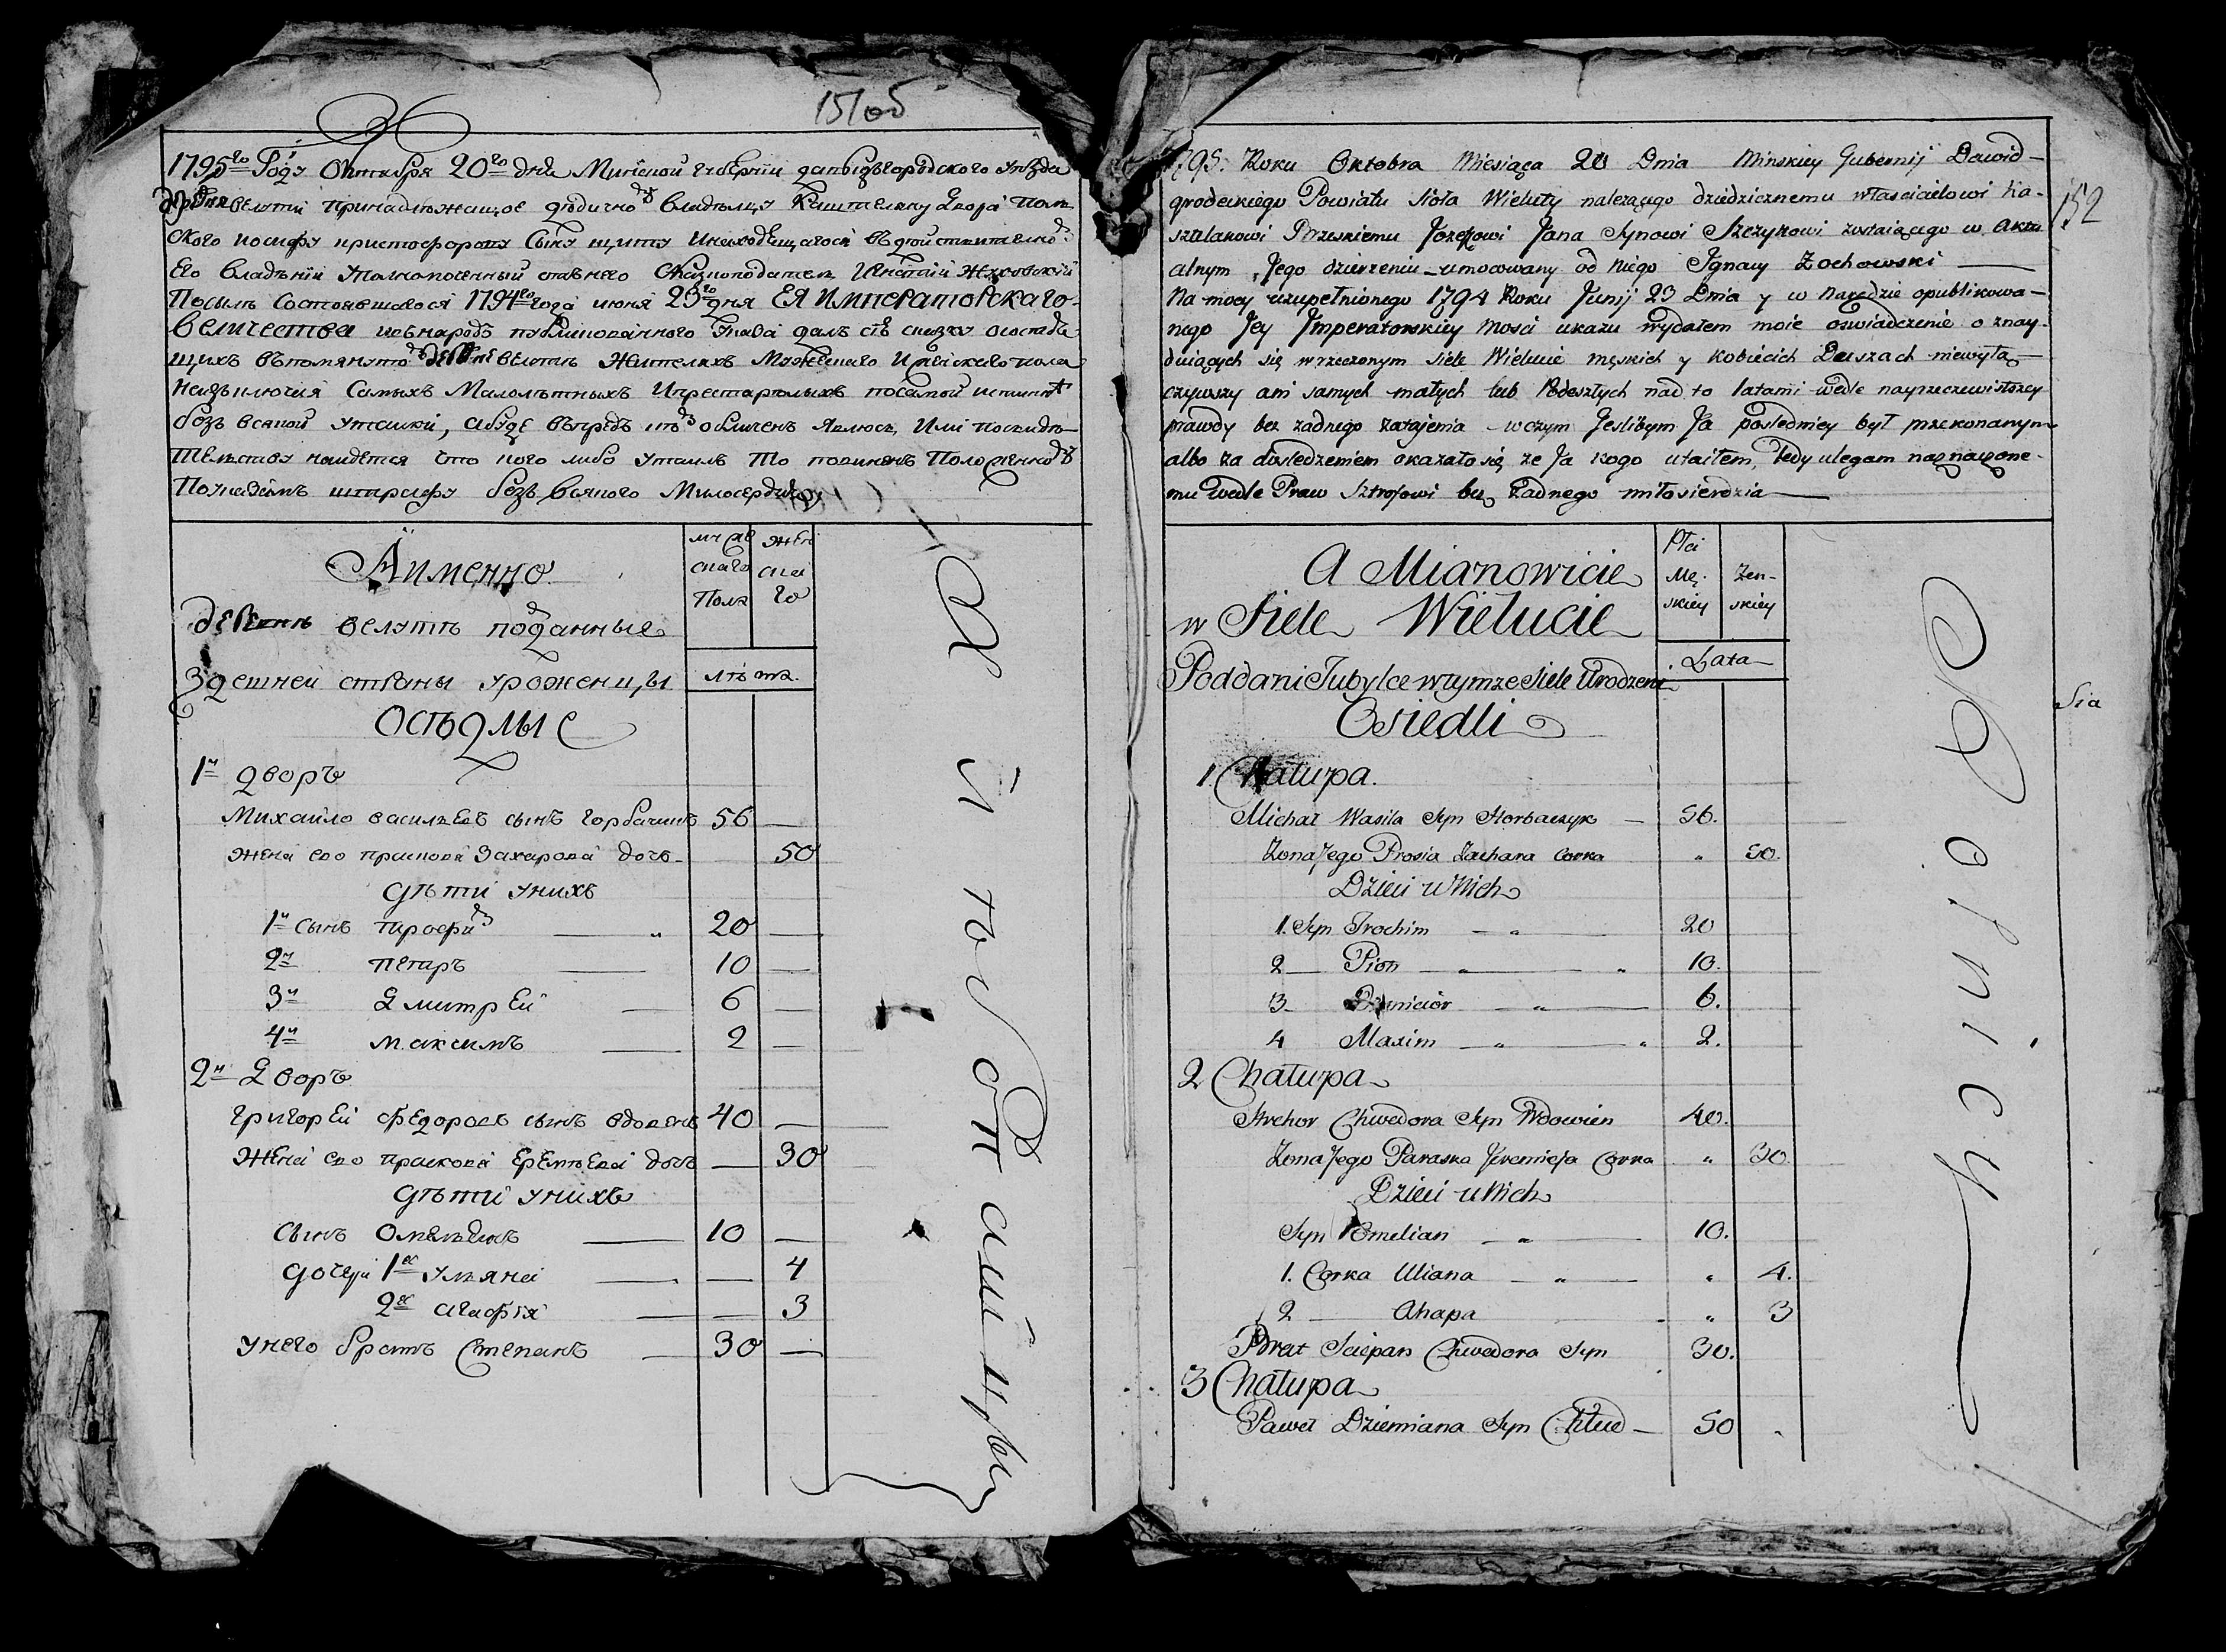 151об
1795го Году Октября 20го дня Минской губернии давыдъгородского уезда
деревни велутѣ принадлѣжащое дѣдичному владѣлцу Каштеляну двора Поль
ского иосифу христофорову Сыну щиту инаходящагося въдействително
Его владѣнии уполномоченный отънего Сказкоподатель Игнатий Жуховский
Посилѣ состоявшагося 1794го года июня 23го дня ЕЯ Императорскаго
Величества ивънародъ публикованного указа далъ сию сказку осостоя
щихъ въпомянутой деревне велютѣ жителяхъ мужескаго иженскаго пола
неизключая Самыхъ Малолѣтныхъ ипрестарелыхъ посамой истиннѣ
безъ всякой утайки, абуде въпредъ изобличенъ явлюсь, или посвидѣ
тельству найдется что кого либо утаилъ то повиненъ Положенному
Поуказамъ штрафу безъ всякого Милосердия
Аименно
деревнѣ велутѣ поданные
здешней страны уроженцы
осѣдлые
мужскаго Пола
женскаго
лѣта
1й дворъ
Михайло васильевъ сынъ горбачикъ 56 —
жена ево прасковя Захарова дочь 50
дѣти унихъ
1й сынъ трофимъ — 20 —
2й петръ — 10 —
3й Дмитрей — 6 —
4й максимъ — 2 —
2й Дворъ
григорей федоровъ сынъ вдовенъ 40 —
жена ево прасковя еремѣева дочь — 30
дѣти унихъ
сынъ омельянъ — 10 —
дочери 1я ульяна — — 4
2я агафия — — 3
унего братъ степанъ — 30 —
1795. Roku Oktobra Miesiąca 20 Dnia Minskiey Gubernij Dawid-
grodeckiego Powiatu sioła Wieluty należącego dziedzicznemu właścicielowi Ka-
sztalanowi Brzeskiemu Jozefowi Jana Synowi Szczytowi zostaiącego w aktu
alnym Jego dzierzeniu umocowany od niego Ignacy Zochowski
Na mocy uzupełnionego 1794 Roku Junij 23 Dnia y w Narodzie opublikowa-
nego Jey Imperatorskiey Mosci ukazu wydałem moie oswiadczenie o znay-
duiących się wrzeczonym siele Wielucie męskich y kobiecich Duszach niewyłą-
czywszy ani samych małych lub Podeszłych nad to latami wedle nayrzeczewistszey
prawdy bez żadnego zatajenia wczym Jeslibym Ja posledniey był przekonanym
albo za dosledzeniem okazało się że Ja kogo utaiłem, Tedy ulegam naznaczone-
mu wedle Praw Sztrofowi bez żadnego miłosierdzia
152
A Mianowicie
w Siele Wielucie
Poddani Tubylce wtymże Siele Urodzeni
Osiedli
Płci Męskiey
Żenskiey
Lata
Sia
1. Chałupa.
Michał Wasila Syn Horbaczyk — 56.
Żona Jego Prosia Zachara Corka " 50.
Dzieci u Nich
1. Syn Trochim — " — 20
2 — Piotr — " — " 10.
3 — Dmicior — " — 6.
4 Maxim — " — " 2.
2 Chałupa
Hrehor Chwedora Syn Wdowien 40.
Żona Jego Paraska Jeremieja Corka " 30.
Dzieci u Nich
Syn Emelian — " — 10.
1. Corka Uliana — " — " 4.
2 — Ahapa " 3
Brat Sciepan Chwedora Syn 30.
3 Chałupa
Paweł Dziemiana Syn — 50